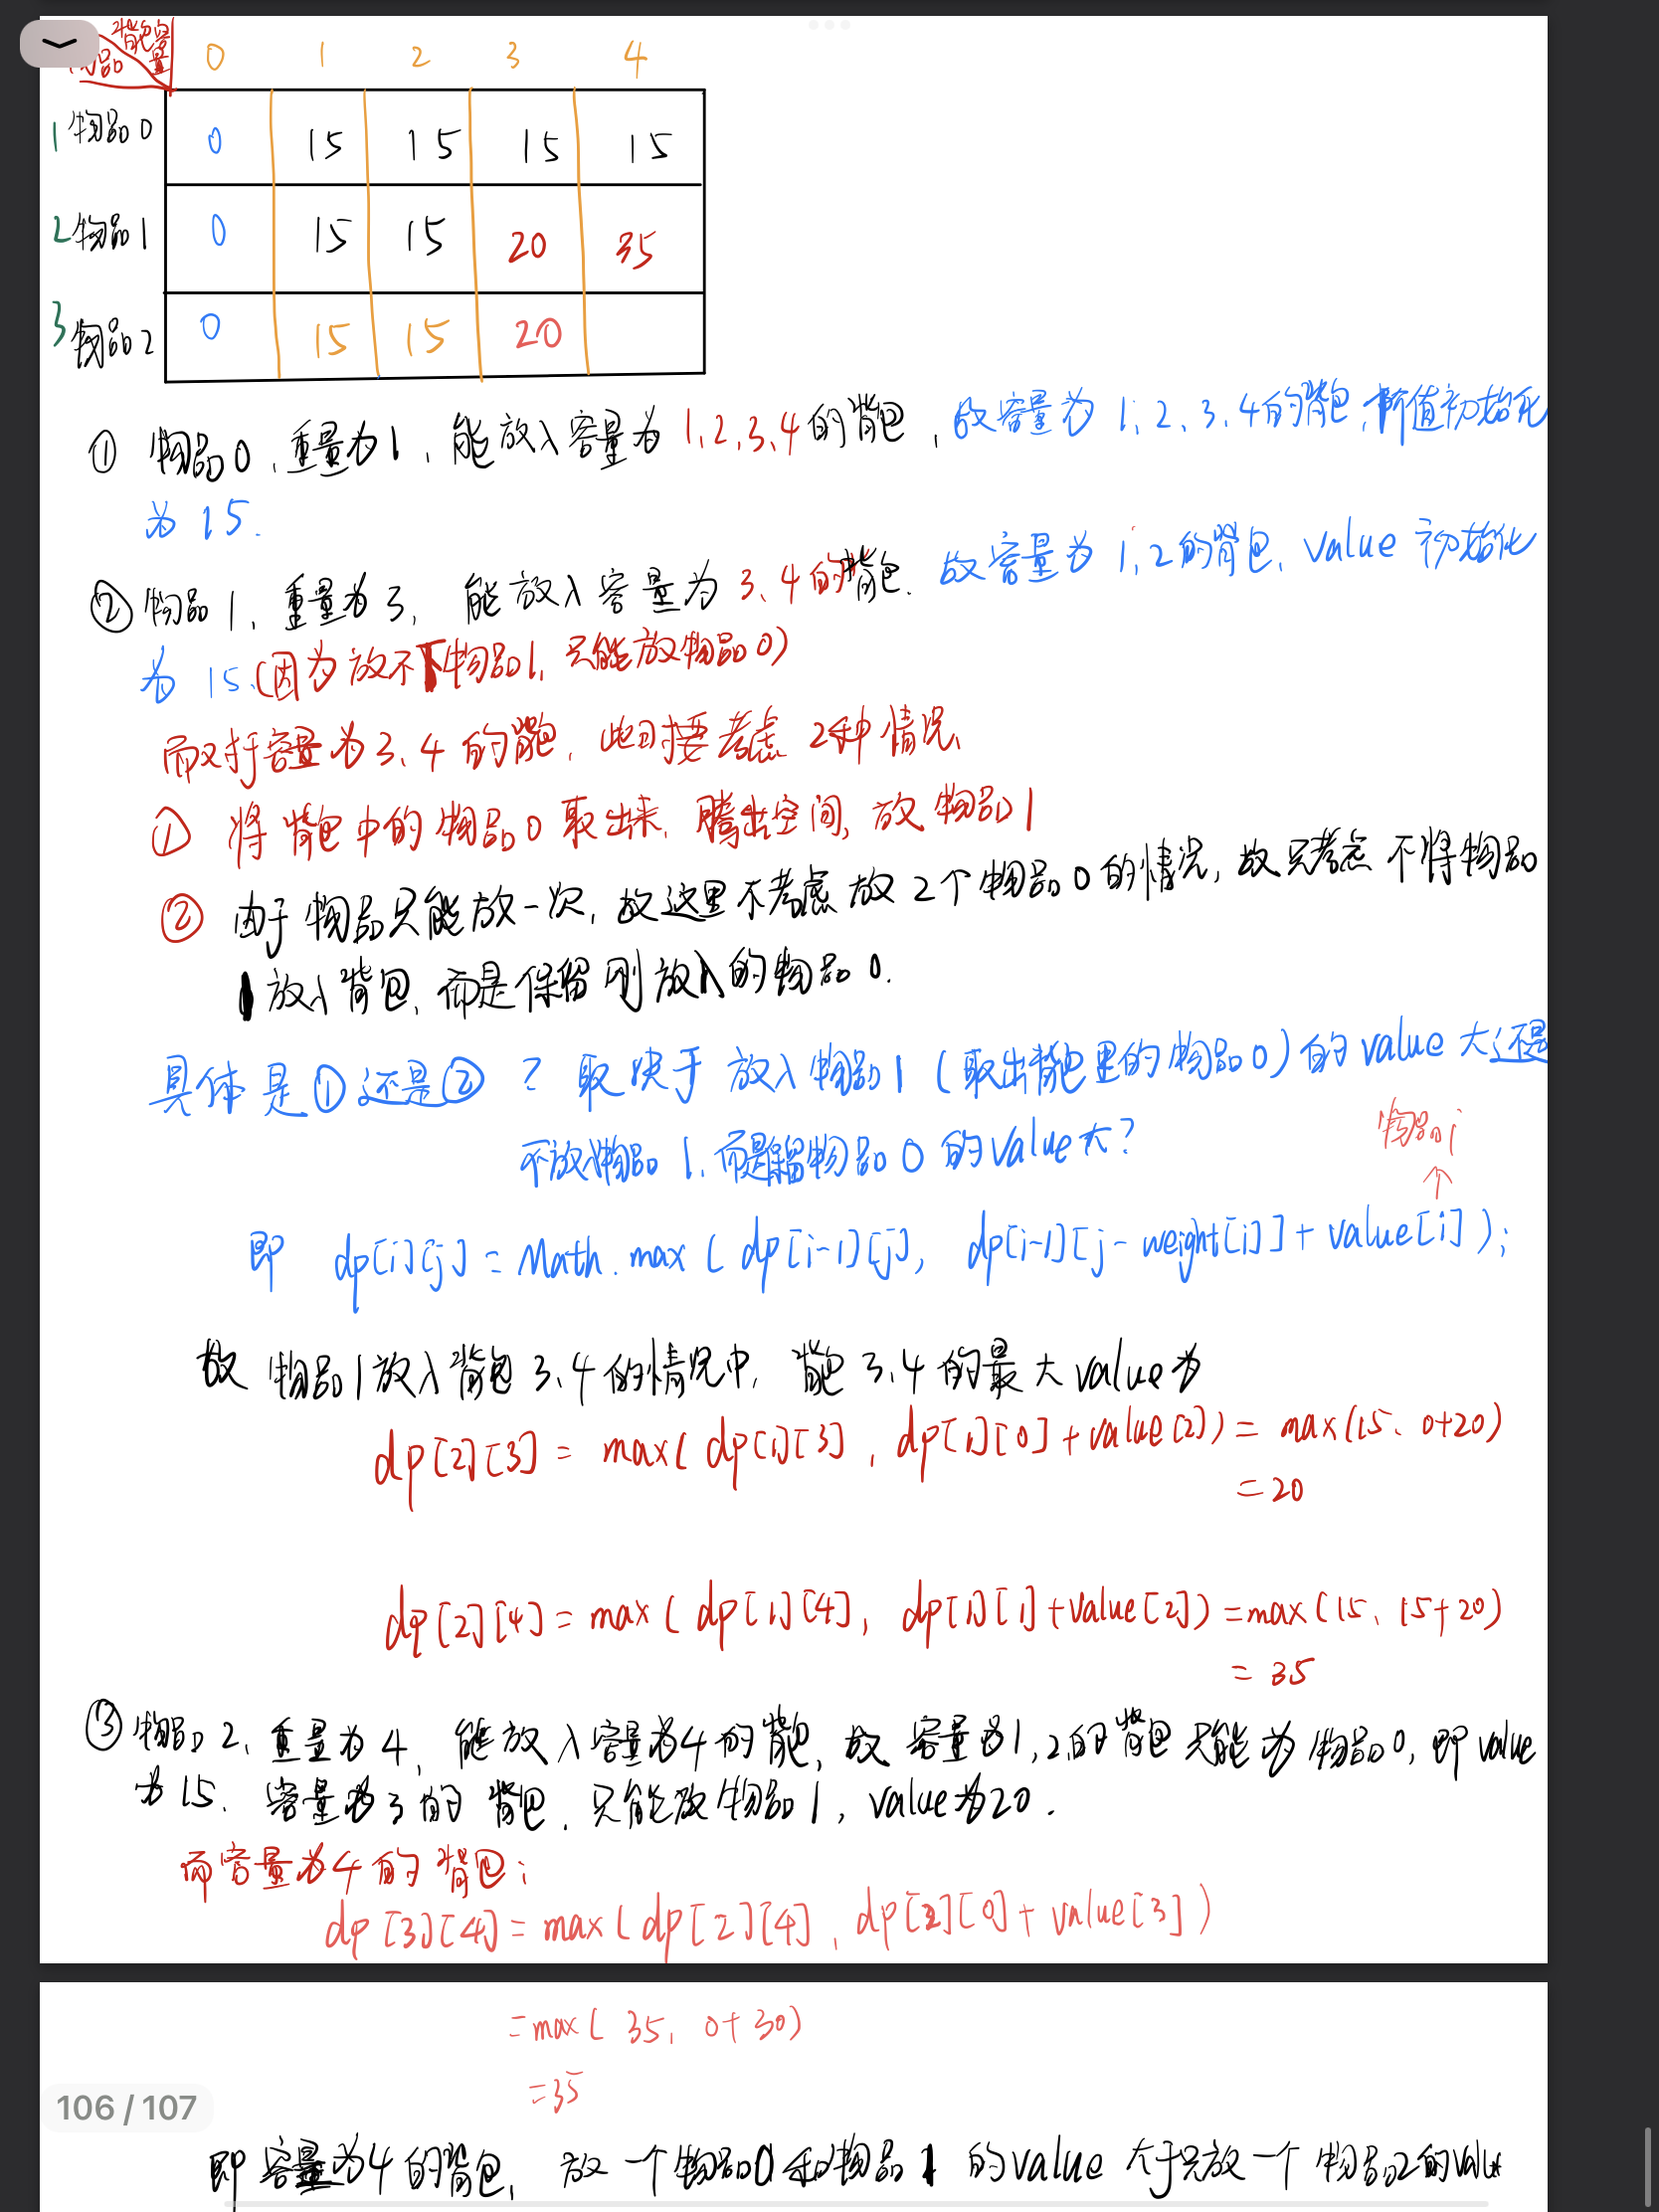 背包容量
物品
0 1 2 3 4
1 物品0 0 15 15 15 15
2 物品1 0 15 15 20 35
3 物品2 0 15 15 20
① 物品0，重量为1，能放入容量为1,2,3,4的背包，故容量为1,2,3,4的背包，价值初始化
为15.
② 物品1，重量为3，能放入容量为3、4的背包. 故容量为1,2的背包，value初始化
为15.(因为放不下物品1，只能放物品0)
而对于容量为3、4的背包，此时要考虑2种情况、
① 将背包中的物品0取出来，腾出空间，放物品1
② 由于物品只能放一次，故这里不考虑放2个物品0的情况，故只考虑不将物品
1放入背包，而是保留刚放入的物品0.
具体是①还是②？取决于放入物品1(取出背包里的物品0)的value大还是
不放入物品1，而是保留物品0的value大?
物品i
↑
即 dp[i][j] = Math.max(dp[i-1][j], dp[i-1][j-weight[i]]+value[i]);
故物品1放入背包3、4的情况中，背包3、4的最大value为
dp[2][3] = max(dp[1][3], dp[1][0]+value[2]) = max(15、0+20)
=20
dp[2][4] = max(dp[1][4], dp[1][1]+value[2]) =max(15、15+20)
= 35
③ 物品2，重量为4，能放入容量为4的背包，故容量为1,2的背包只能为物品0，即value
为15. 容量为3的背包，只能放物品1，value为20.
而容量为4的背包：
dp[3][4]=max(dp[2][4], dp[2][0]+value[3])
=max(35, 0+30)
=35
106 / 107
即容量为4的背包，放一个物品0和物品1的value大于只放一个物品2的value